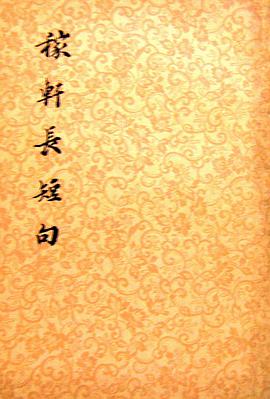 稼軒長短句